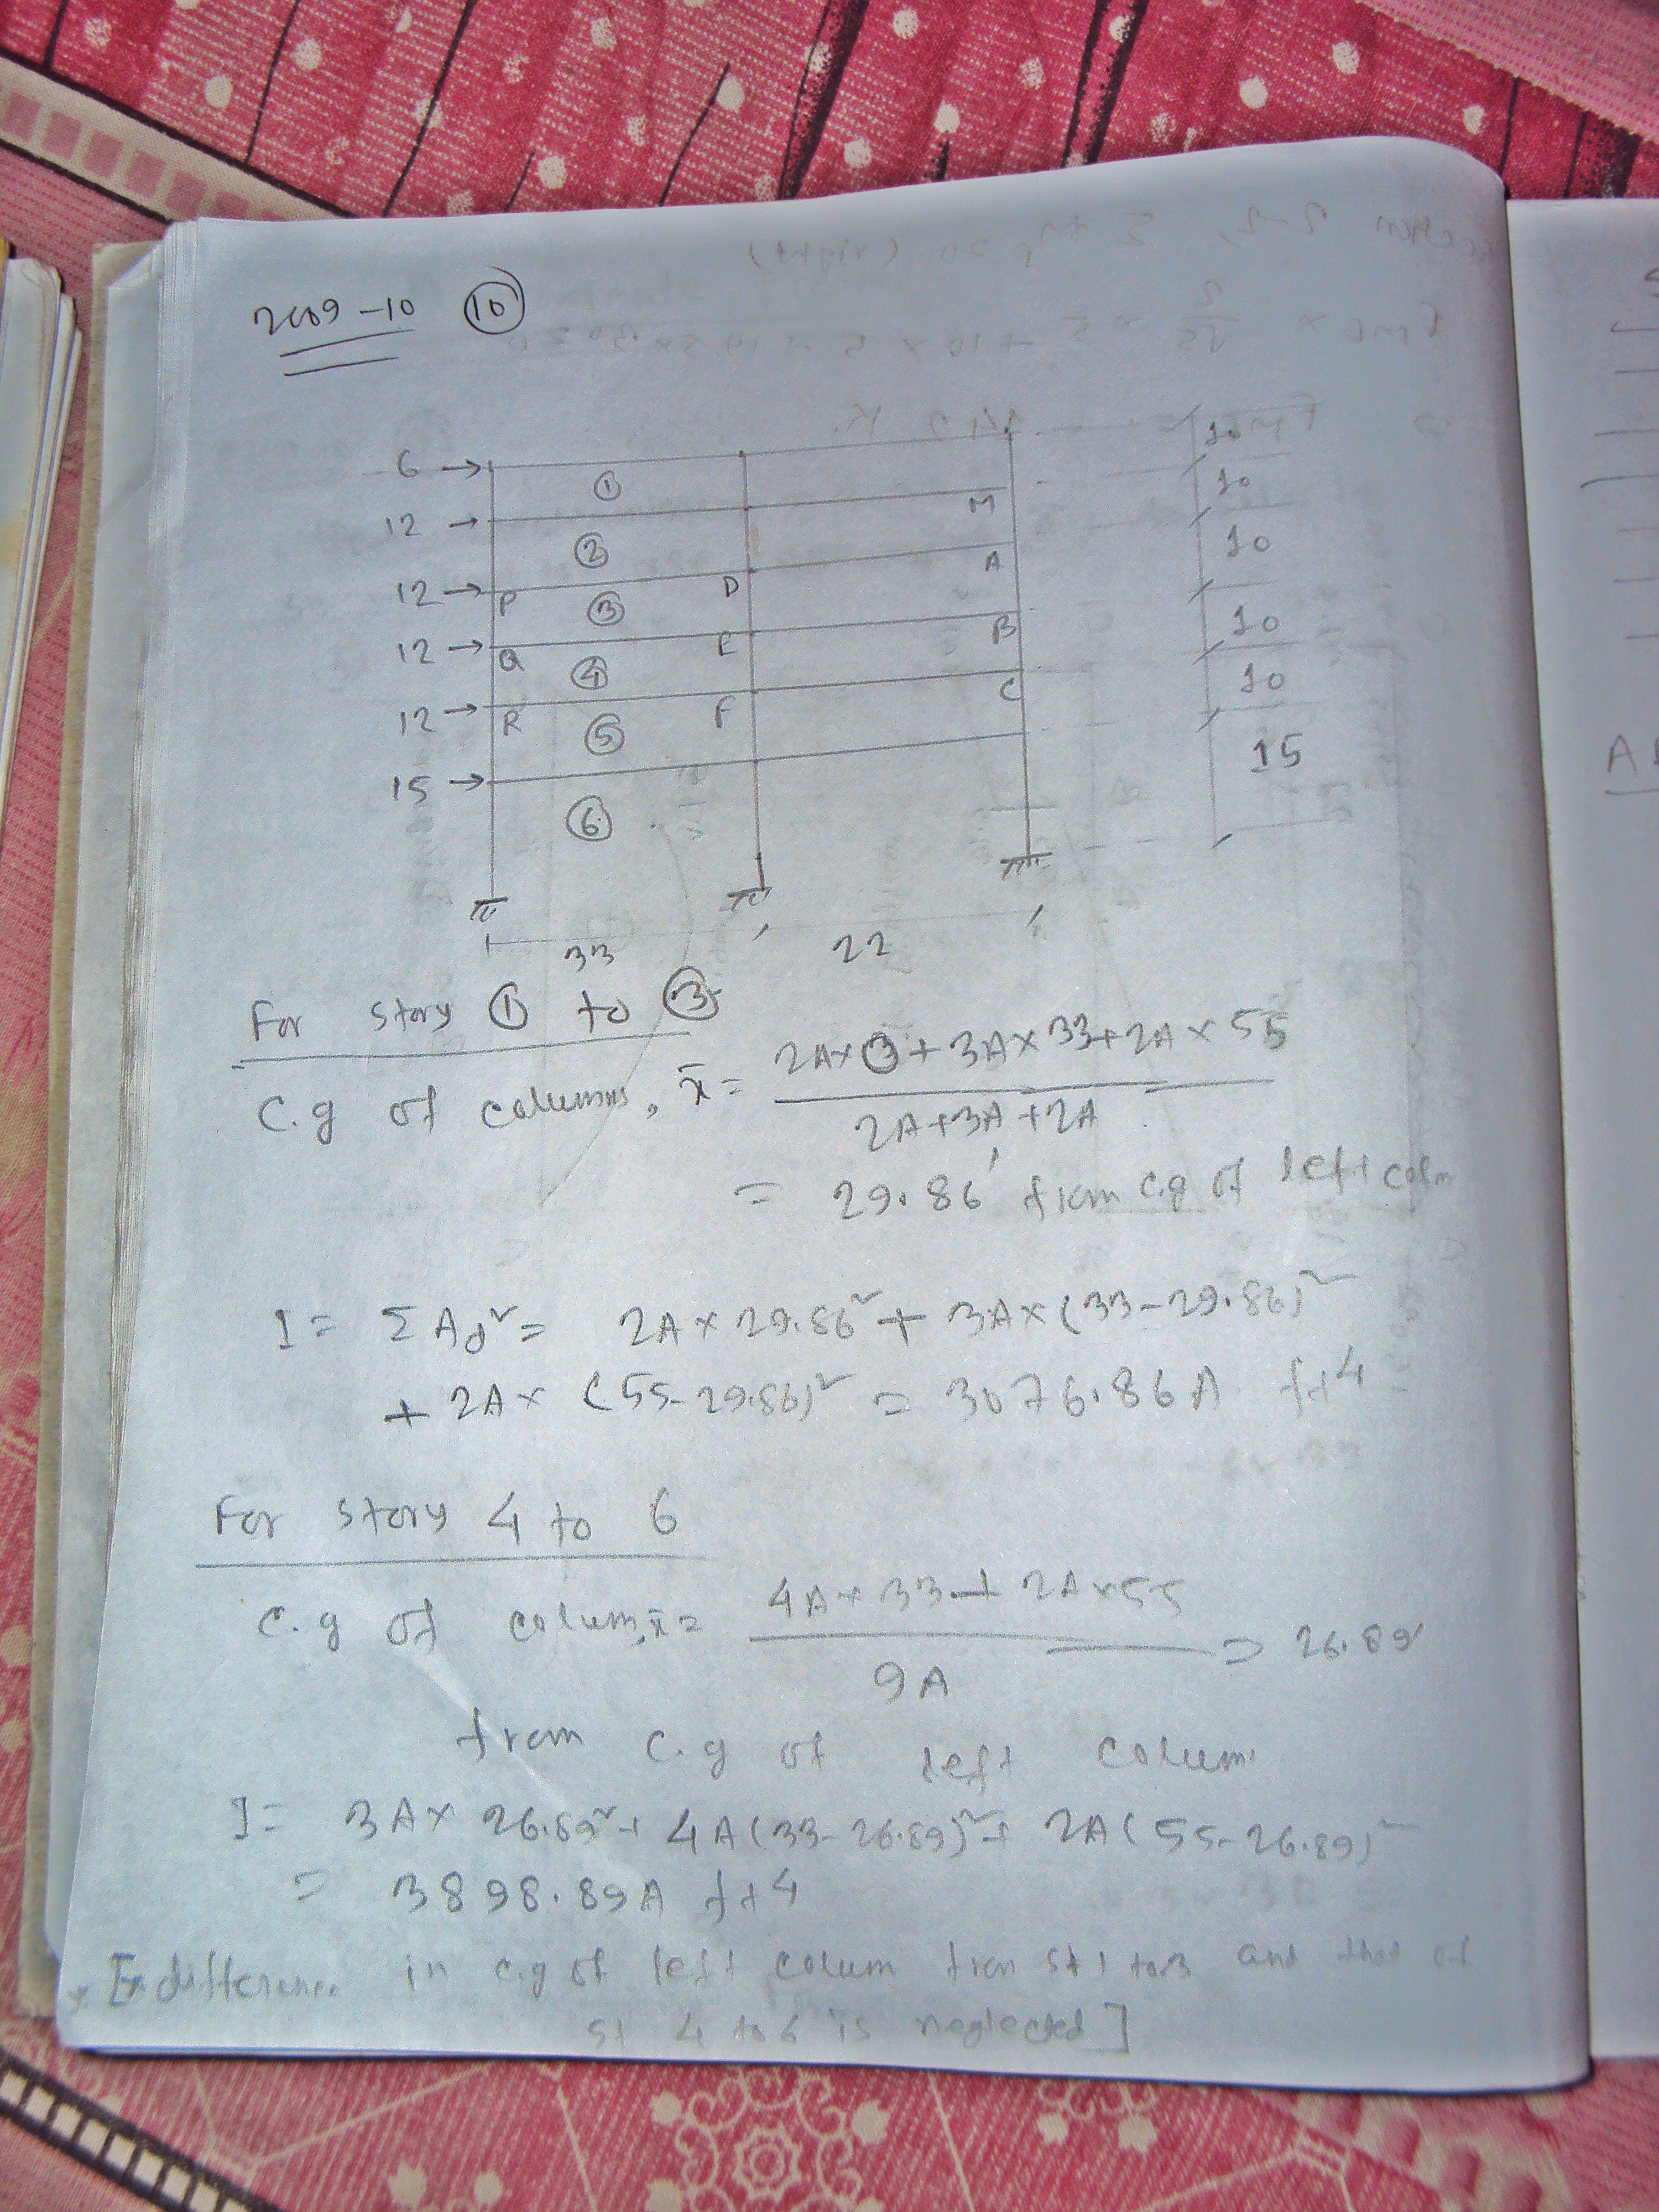 2009-10 (10)
6 → 10
① M 10
12 →
② A 10
12 → P D
③ B 10
12 → Q E
④ C 10
12 → R F
⑤ 15
15 →
⑥
33 22
For story ① to ③
C.g of columns, x̄ = (2A×0 + 3A×33 + 2A×55
2A+3A+2A
= 29.86' from c.g of left colm
I = ΣAd² = 2A×29.86² + 3A×(33-29.86)²
+ 2A×(55-29.86)² = 3076.86A ft4
For story 4 to 6
4A×33 + 2A×55
C.g of colum, x̄ = = 26.89'
9A
from c.g of left colum
I = 3A×26.89² + 4A(33-26.89)² + 2A(55-26.89)²
= 3898.89A ft4
difference in c.g of left colum from st 1 to 3 and that of
st 4 to 6 is neglected]